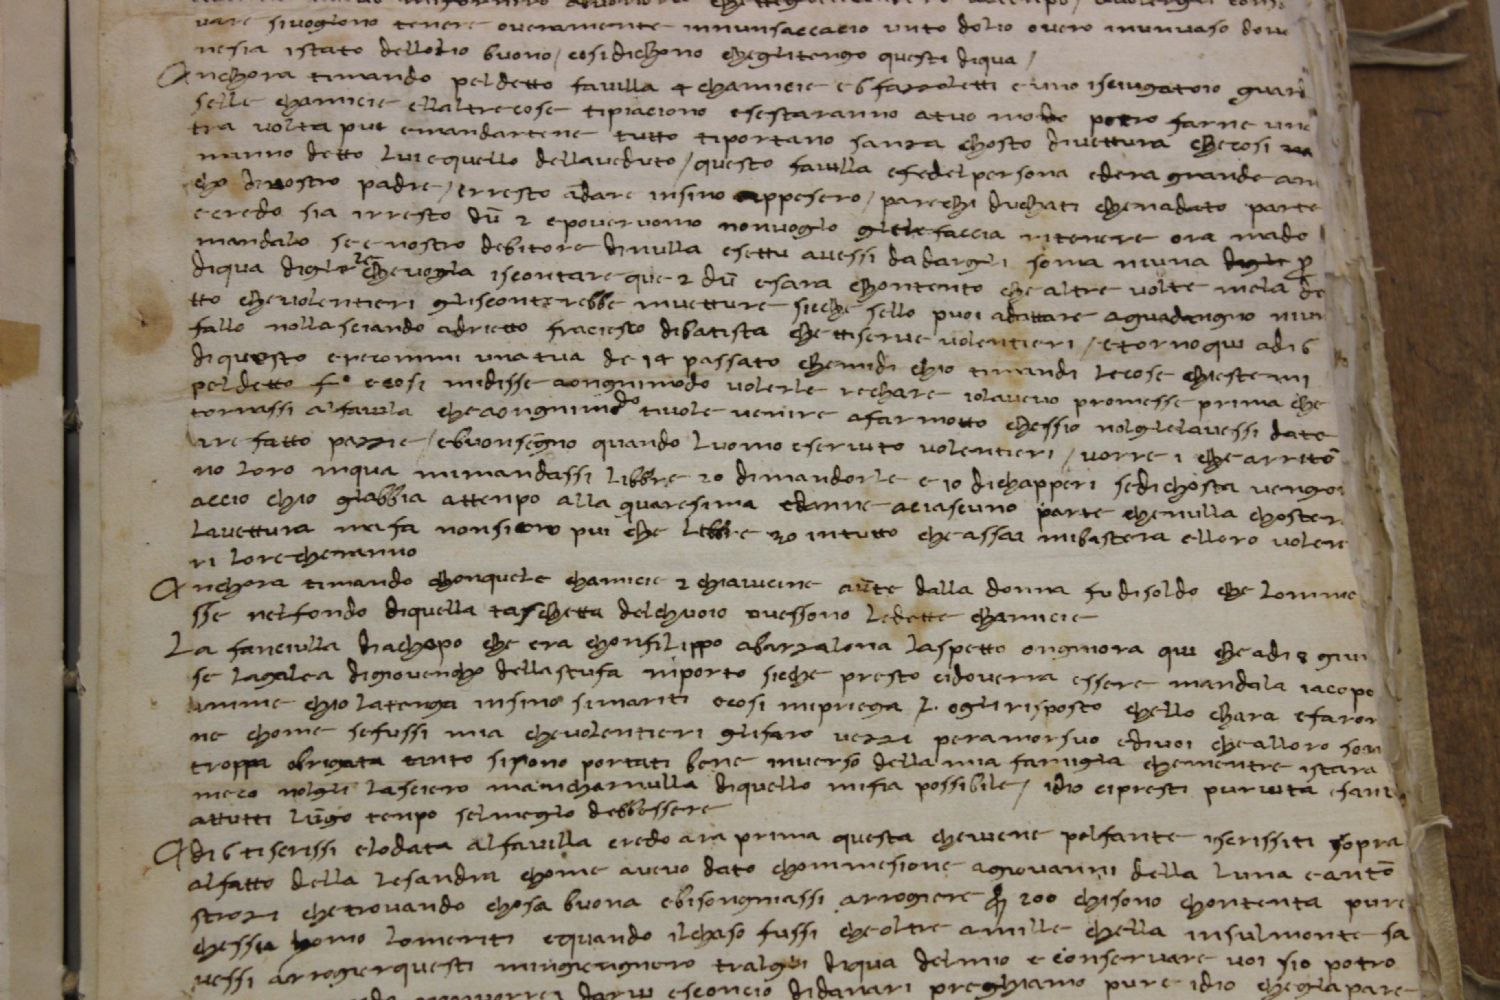 vare sivogliono tenere overamente innunsaccacio unto dolio overo inunvaso dove
nesia istato dellolio buono / cosi dichono cheglitengo questi diqua /
Anchora timando peldetto favilla 4 chamicie e 6 fazzoletti e uno isciugatoio guar
selle chamicie ellaltrecose tipiaciono esestaranno atuo modo potro farne un
tra volta piu emandartene tutto tiportano sanza chosto divettura checosi
manno detto lui equello dellaveduto / questo favilla efedelpersona edera grande am
cho di nostro padre / erresto adare insino appesero / parechi duchati chenadato parte
ecredo sia irresto du 2 epoverouomo nonvoglio gliele faccia ritenere ora mado
mandalo se e nostro debitore dinulla esettu avessi dadargli soma niuna
diqua digle chevogla iscontare que 2 du esara chontento chealtre volte mela de
tto chevolentieri gliscontrebbe invetture siche sello puoi adattare aguadangno niun
fallo nollasciando adrietto fraciesco dibatista chettiserve volentieri / etornoqui adi 6
diquesto eperommi una tua de 14 passato chemidi chio timandi lecose chiestemi
peldetto fo ecosi midisse aongnimodo volerle rechare iolavevo promesse prima che
tornassi alfavilla cheaongnimodo tivole venire afarmotto chessio nolglelavessi date
are fatto pazzie / ebuonsegno quando luomo eservito volentieri / vorrei chearrito
no loro inqua mimandassi libbre 20 dimandorle e 10 dichapperi sedichosta vengo
accio chio glabbia attenpo alla quaresima edanne aciascuno parte chenulla choster
lavettura nefa nonsieno piu che libbre 30 intutto cheassai mibastera elloro volen
ri lorecheranno
Anchora timando chonquele chamicie 2 chiavicine aute dalla donna fu disoldo che lomme
sse nelfondo diquella taschetta delchuoio ovessono ledette chamicie
La fanciulla diachopo che era chonfilippo abarzalona laspetto ongniora qui cheadi 8 giu
se lagalea digiovencho dellastufa niporto siche presto cidoverra essere mandala iacopo
amme chio latenga insino simariti ecosi mipriega / l ogli risposto chello chara efaron
ne chome sefussi mia chevolentieri glifaro vezzi peramorsuo edivoi chealloro son
troppa obrigata tanto sisono portati bene inverso della mia famigla chementre istara
meco nolgli lasciero mancharnulla diquello mifia possibile / idio cipresti purvita esani
attutti lungo tenpo selmeglo debbessere
Adi 6 tiscrissi elodata alfavilla credo ara prima questa cheviene pelfante iscrissiti sopra
alfatto della lesandra chome avevo dato chommesione agiovanni della luna eanto
strozi chetrovando chosa buona ebisongniassi arrogiere 200 chisono chontenta pure
chessia homo lomeriti equando ilchaso fussi cheoltre amille chella insulmonte sa
vessi arrogierquesti mingiengnero tralgli diqua delmio e conservare voi sio potro